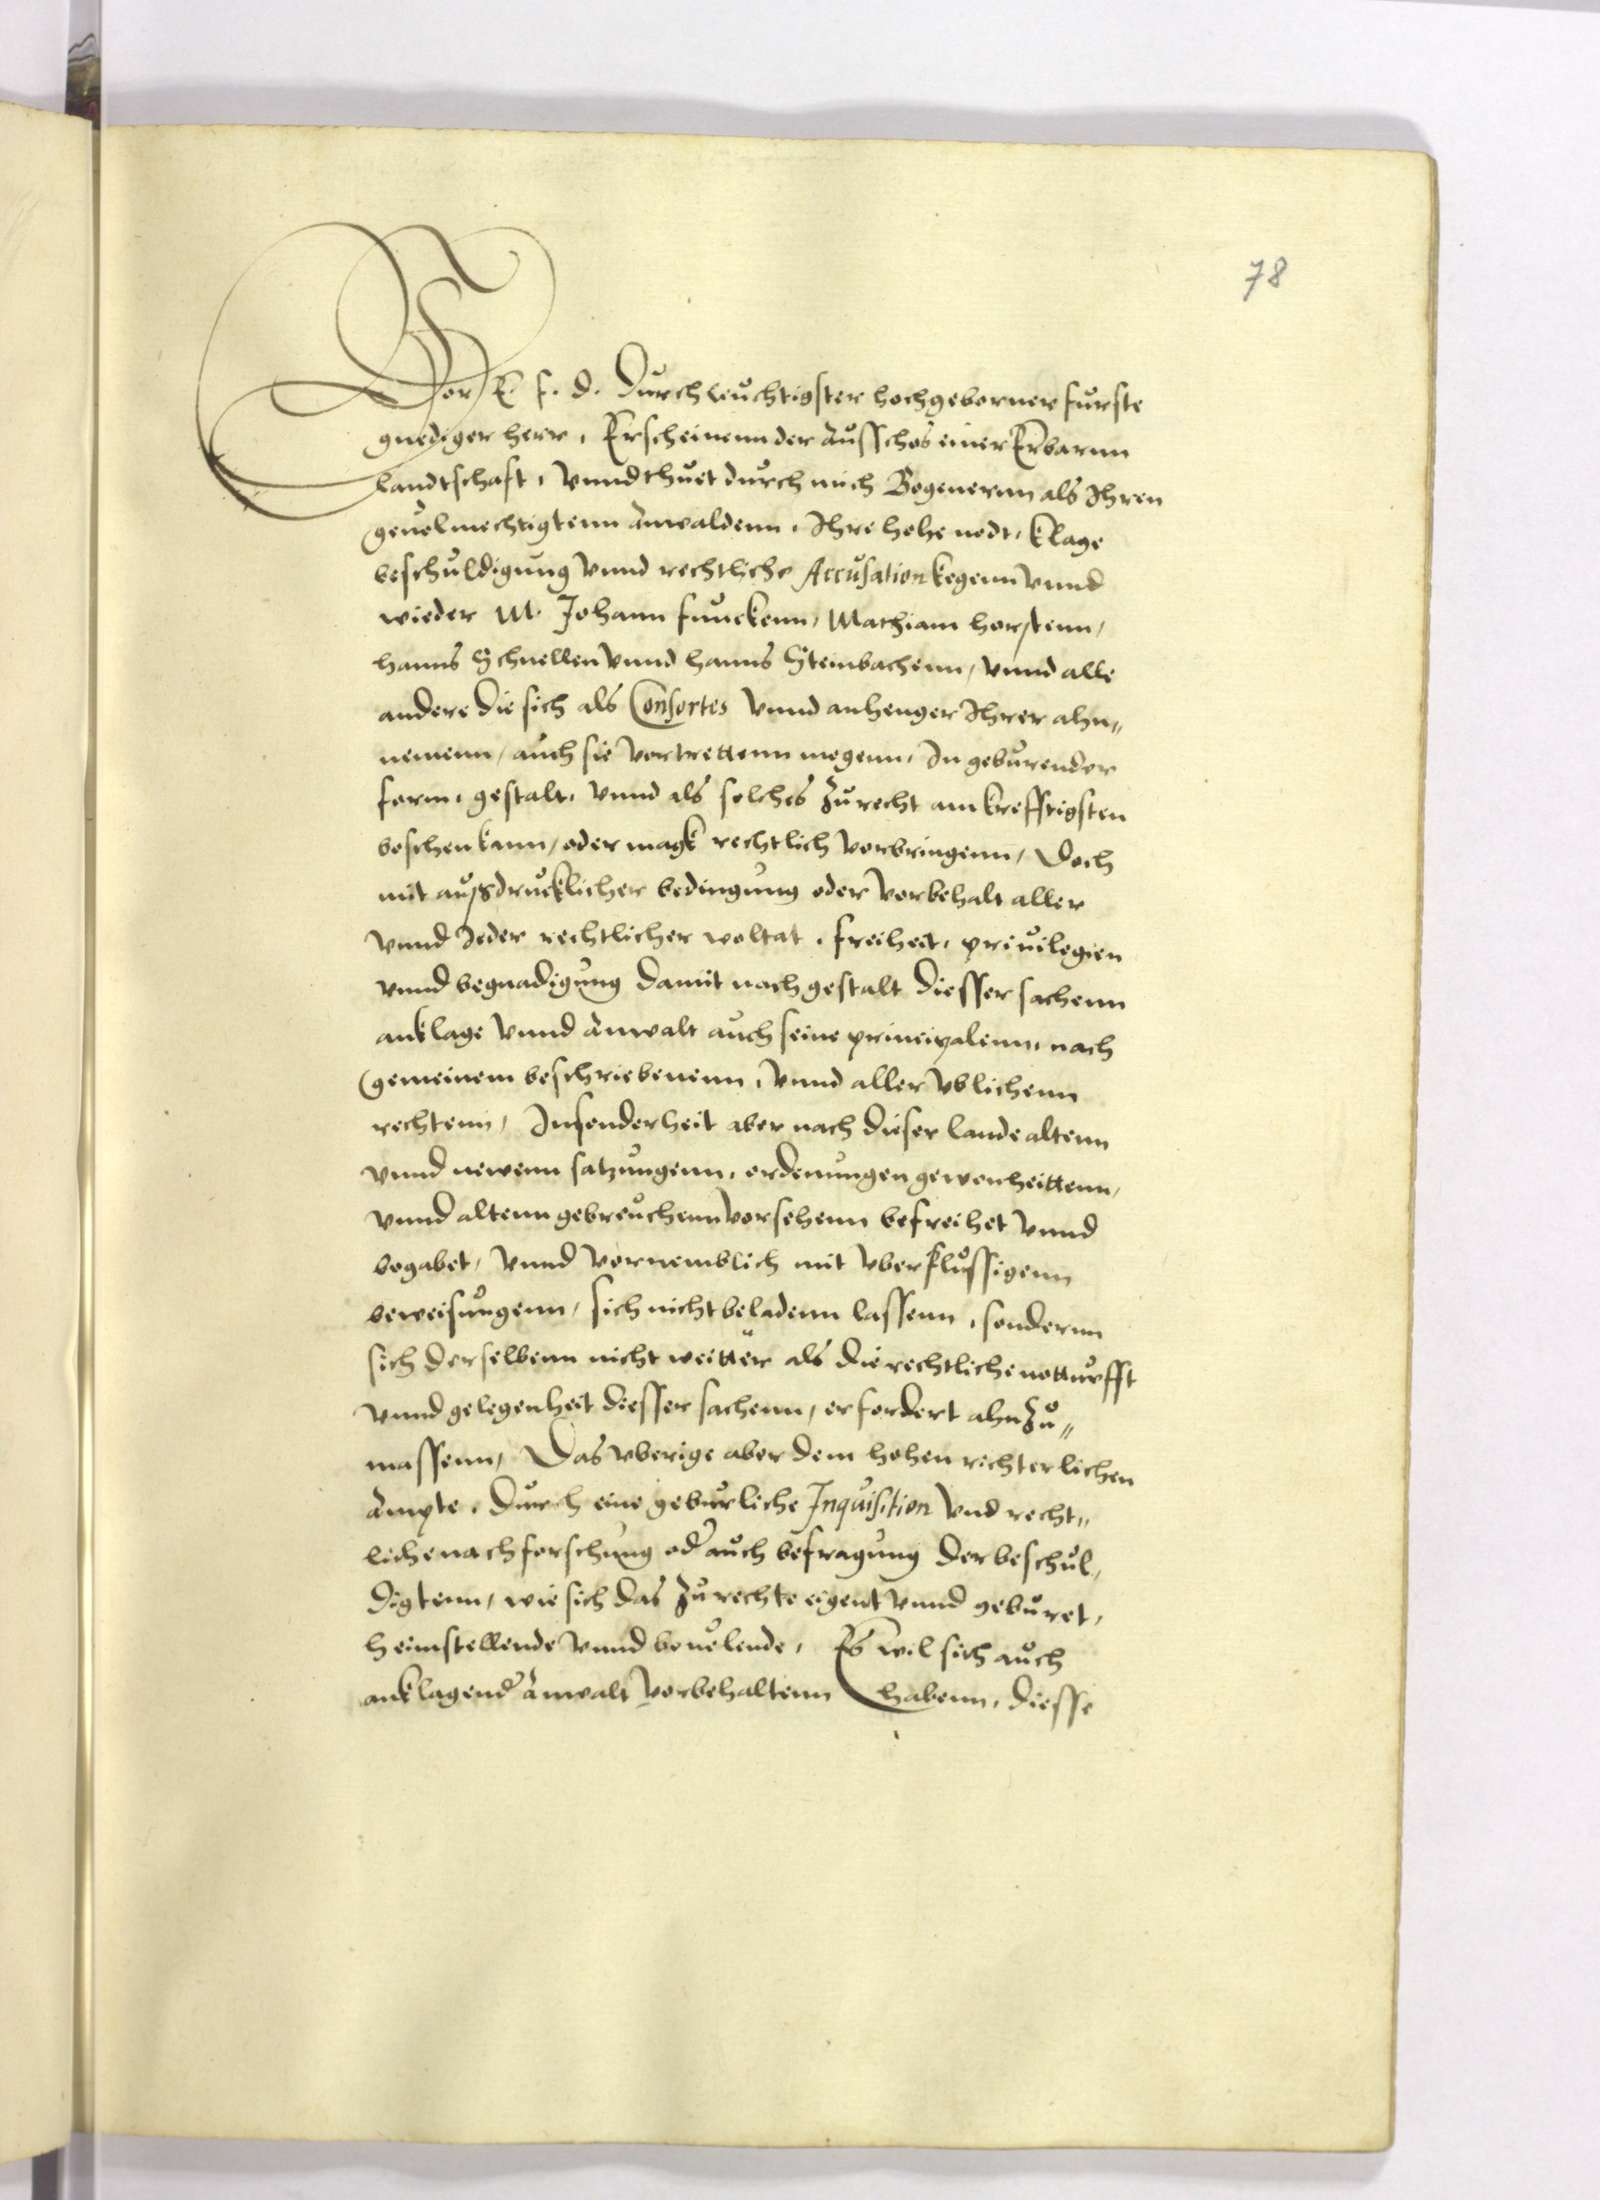 78
Vor E. f. d. Durchleuchtigster hochgeborner furste
gnediger herr, Erscheinenn der Ausschos einer Erbarnn
landtschaft, vnnd thuet durch mich Begenernn als Ihren
geuolmechtigtenn Anwaldenn, Ihre hohe nodt, klage
beschuldigung vnnd rechtliche Accusation kegenn vnnd
wieder M. Johann funckenn, Mathiam horstenn,
hanns Schnellen vnnd hanns Steinbachenn, vnnd alle
andere die sich als Consortes vnnd anhenger Ihrer ahn„
nemenn, auch sie vortrettenn mogenn, In geburender
form, gestalt, vnnd als solches zu recht am krefftigsten
beschen kann, oder magk rechtlich vorbringenn, Doch
mit außdrucklicher bedingung oder vorbehalt aller
vnnd Jeder rechtlicher woltat, freiheit, priuilegien
vnnd begnadigung damit nach gestalt diesser sachenn
anklage vnnd Anwalt auch seine principalenn, nach
gemeinem beschriebenenn, vnnd aller vblichenn
rechtenn, Insonderheit aber nach dieser lande altenn
vnnd newenn satzungenn, ordenungen gewonheittenn,
vnnd altenn gebreuchenn vorsehenn befreihet vnnd
begabet, vnnd vornemblich mit vberflussigenn
beweisungenn, sich nicht beladenn lassenn, sondernn
sich derselbenn nicht weitter als die rechtliche notturfft
vnnd gelegenheit diesser sachenn, erfordert ahnzu„
massenn, Das vberige aber dem hohen richterlichen
Ampte, durch eine geburliche Inquisition vnd recht„
liche nachforschung od auch befragung der beschul„
digtenn, wie sich das zu rechte eigent vnnd geburet,
heimstellende vnnd beuelende, Es wil sich auch
anklagend Anwalt vorbehaltenn habenn, diesse